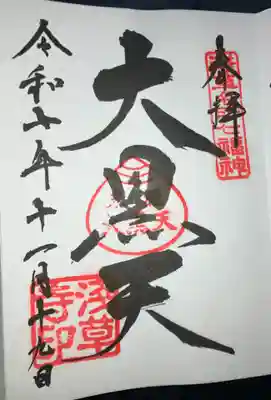 奉拝
浅草名所七福神
大黒天
浅草寺印
令和六年十一月十九日